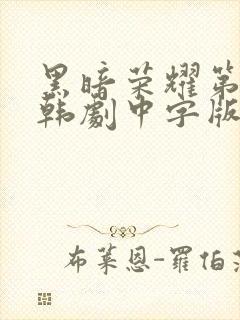 黑暗荣耀第
韩劇中字版
布莱恩-羅伯